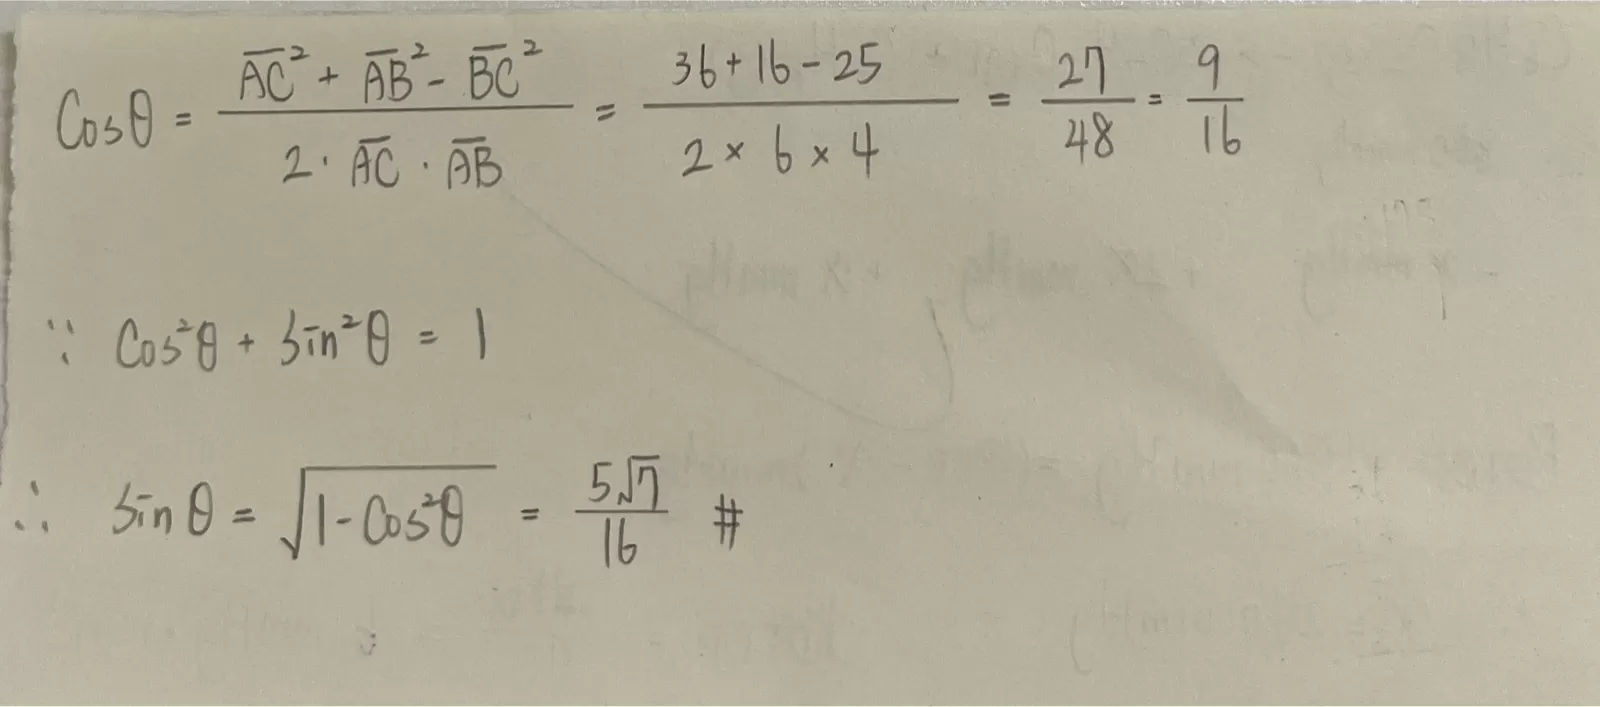 Cosθ = (A̅C̅² + A̅B̅² - B̅C̅²) / (2 · A̅C̅ · A̅B̅) = (36 + 16 - 25) / (2 × 6 × 4) = 27/48 = 9/16
∵ Cos²θ + Sin²θ = 1
∴ Sinθ = √(1 - Cos²θ) = 5√7/16 #